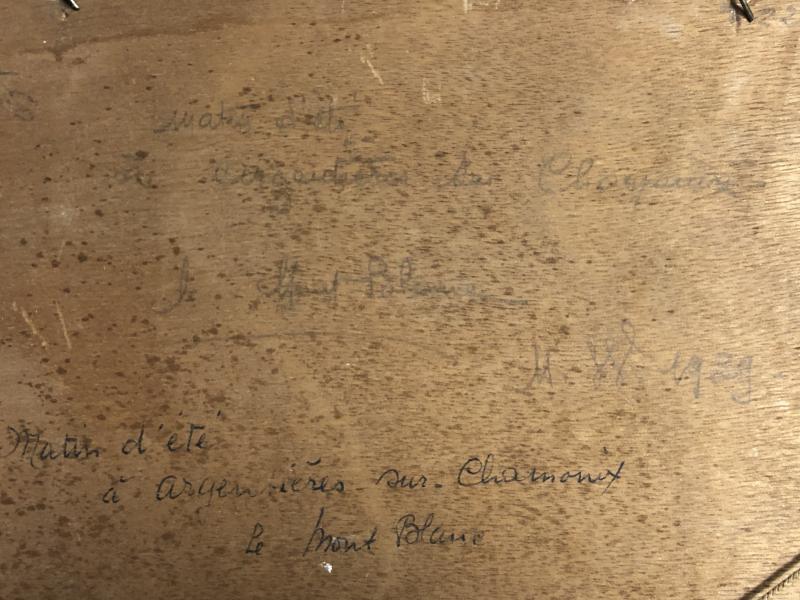 Matin d'été
à Chamonix
le Mont Blanc
M. W. 1929.
Matin d'été
à argentières sur Chamonix
le Mont Blanc